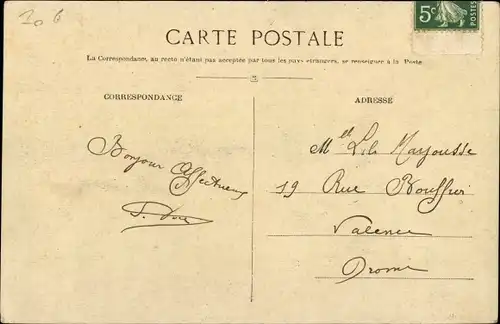 206
5c
POSTES
CARTE POSTALE
La Correspondance, au recto n'étant pas acceptée par tous les pays étrangers, se renseigner à la Poste
CORRESPONDANCE
ADRESSE
Bonjour Affectueux
Mlle Lili Mayousse
19 Rue Bouffier
Valence
Drome